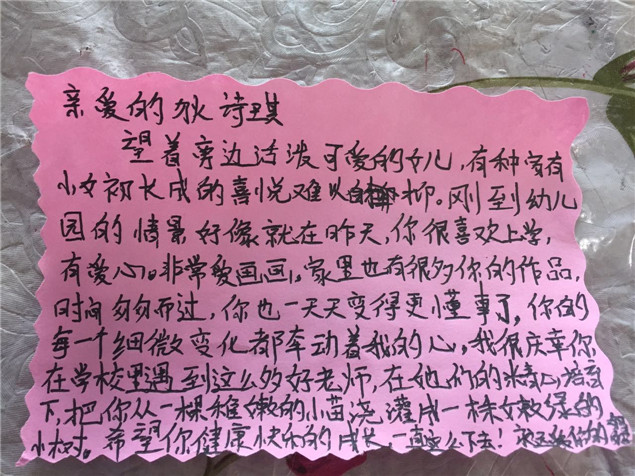 亲爱的狄诗琪
望着旁边活泼可爱的女儿,有种家有
小女初长成的喜悦难以抑。刚到幼儿
园的情景好像就在昨天,你很喜欢上学,
有爱心。非常爱画画,家里也有很多你的作品,
时间匆匆而过,你也一天天变得更懂事了,你的
每一个细微变化都牵动着我的心,我很庆幸你
在学校里遇到这么多好老师,在她们的精心培育
下,把你从一棵稚嫩的小苗浇灌成一株嫩绿的
小树。希望你健康快乐的成长,一直这么下去!